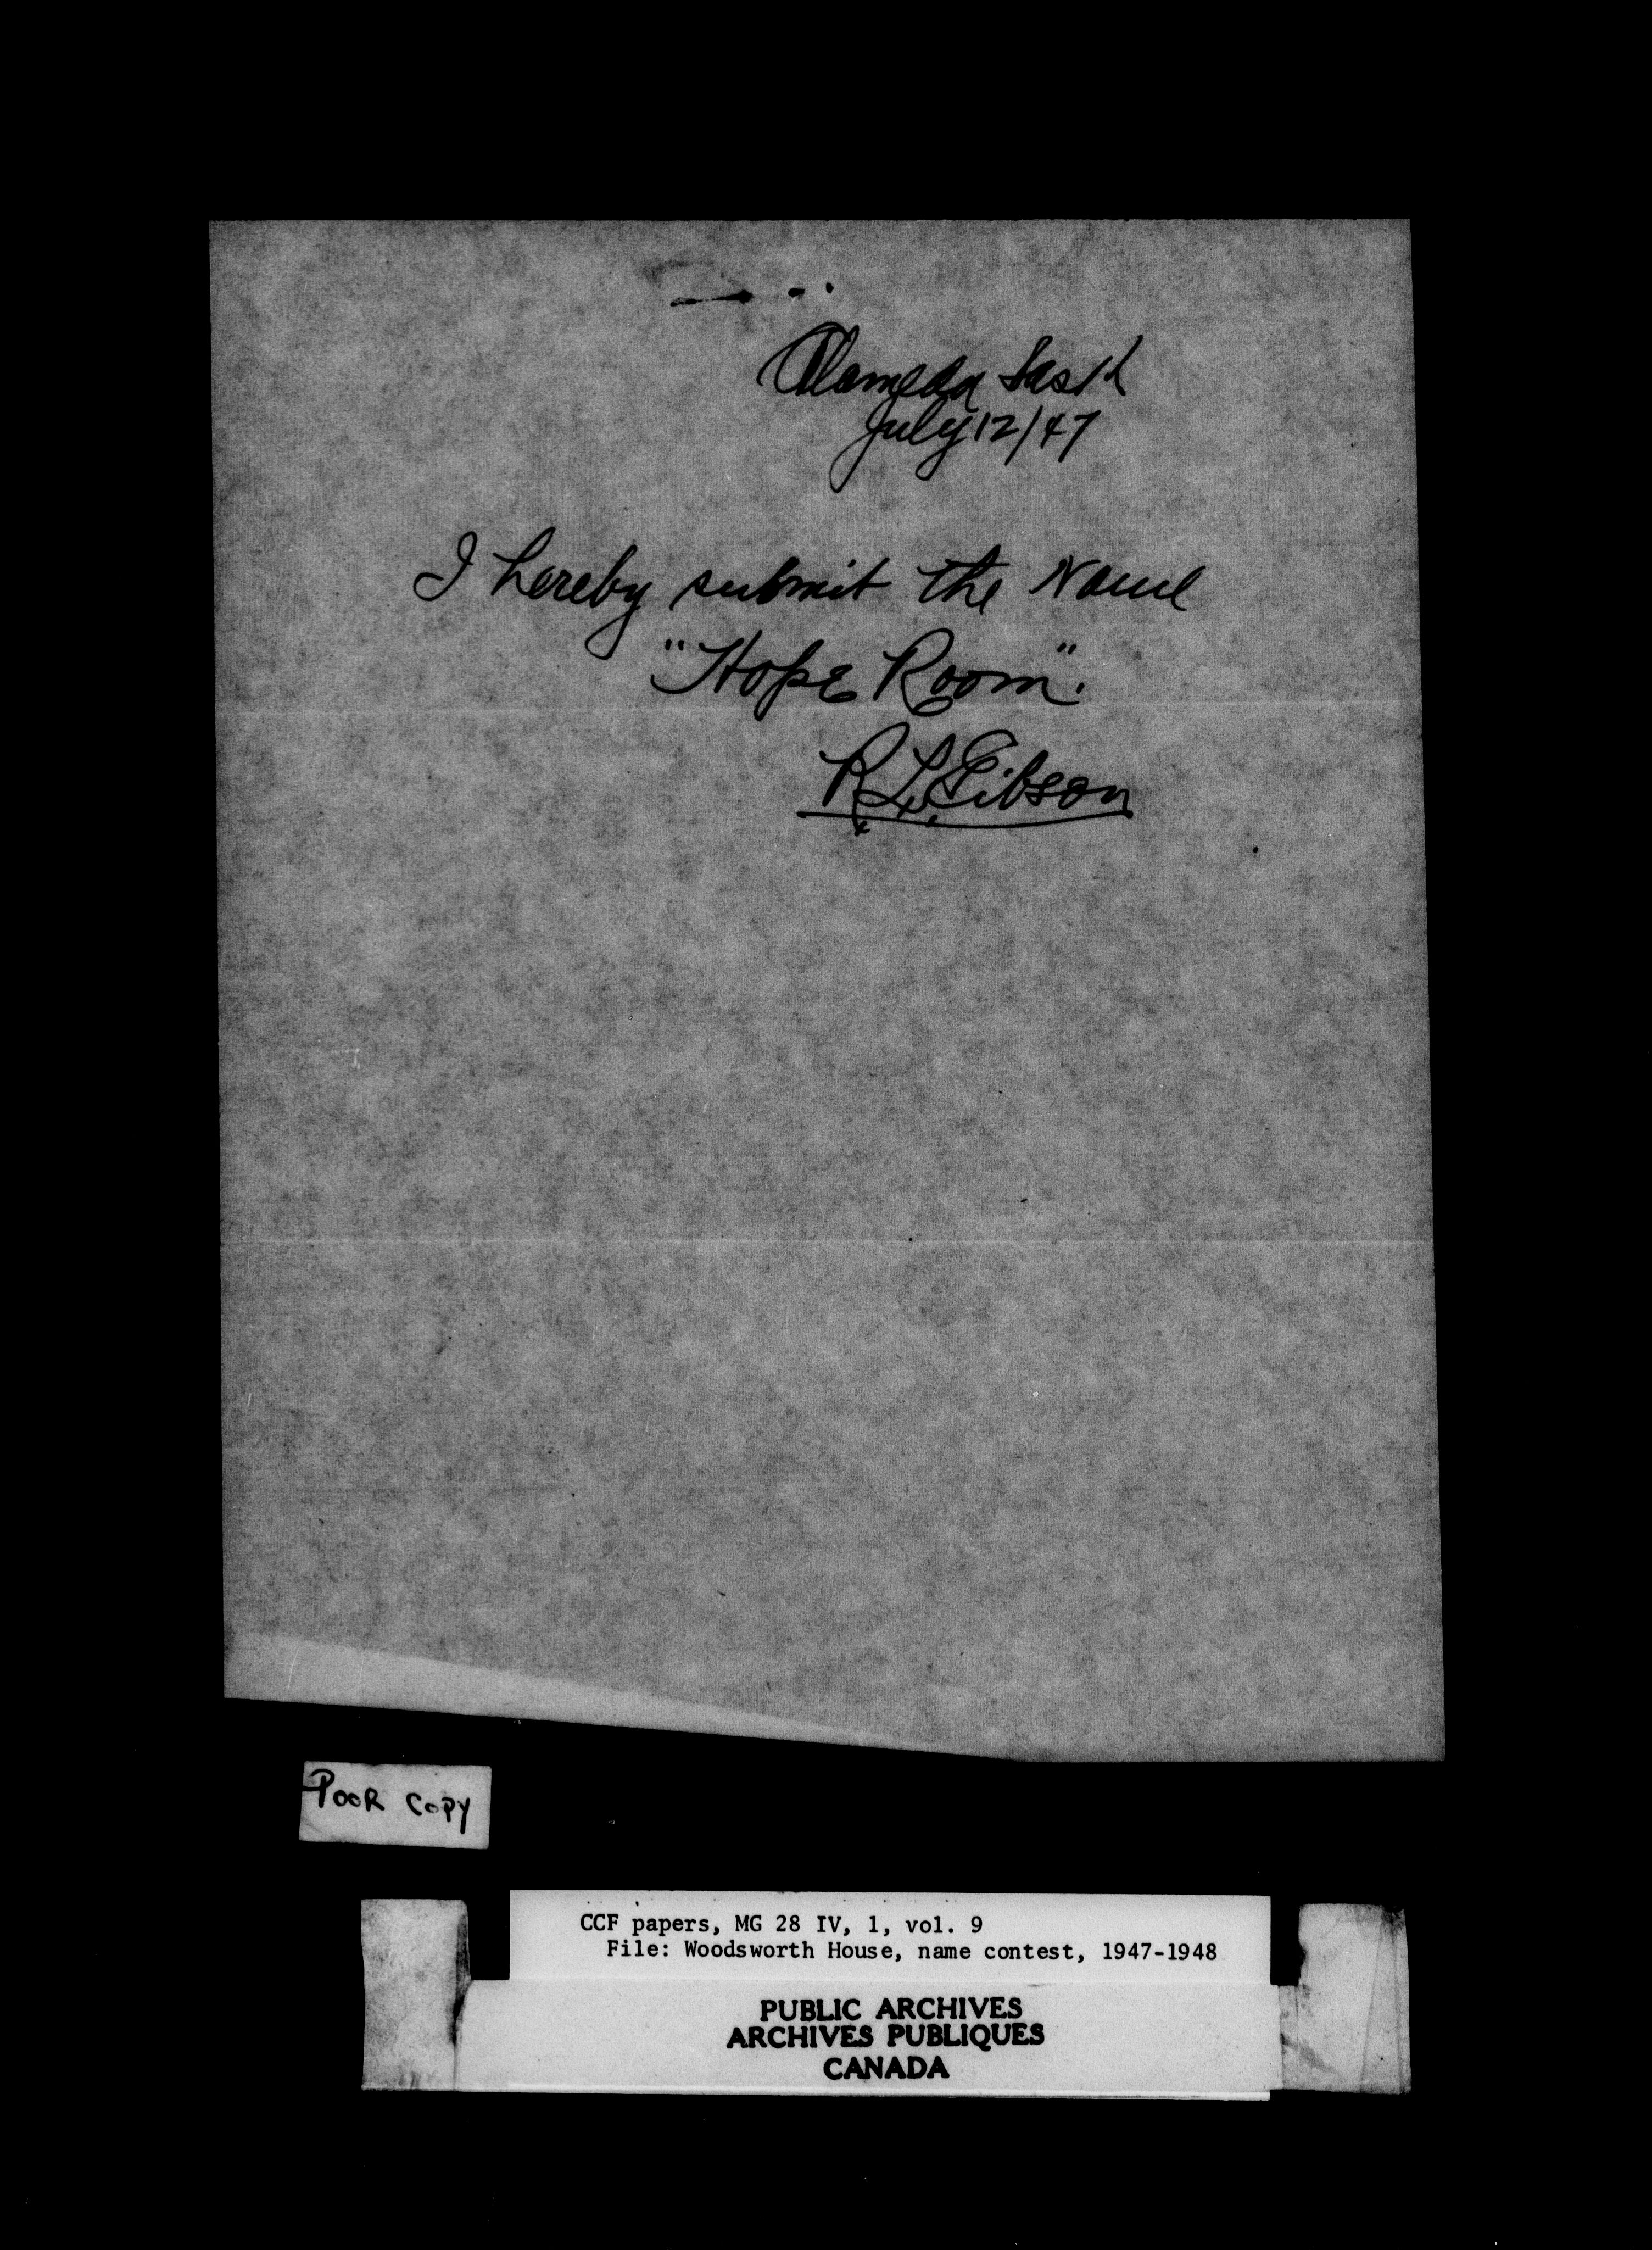 Alameda Sask
July 12/47
I hereby submit the Name
"Hope Room".
R. L. Gibson
POOR COPY
CCF papers, MG 28 IV, 1, vol. 9
File: Woodsworth House, name contest, 1947-1948
PUBLIC ARCHIVES
ARCHIVES PUBLIQUES
CANADA